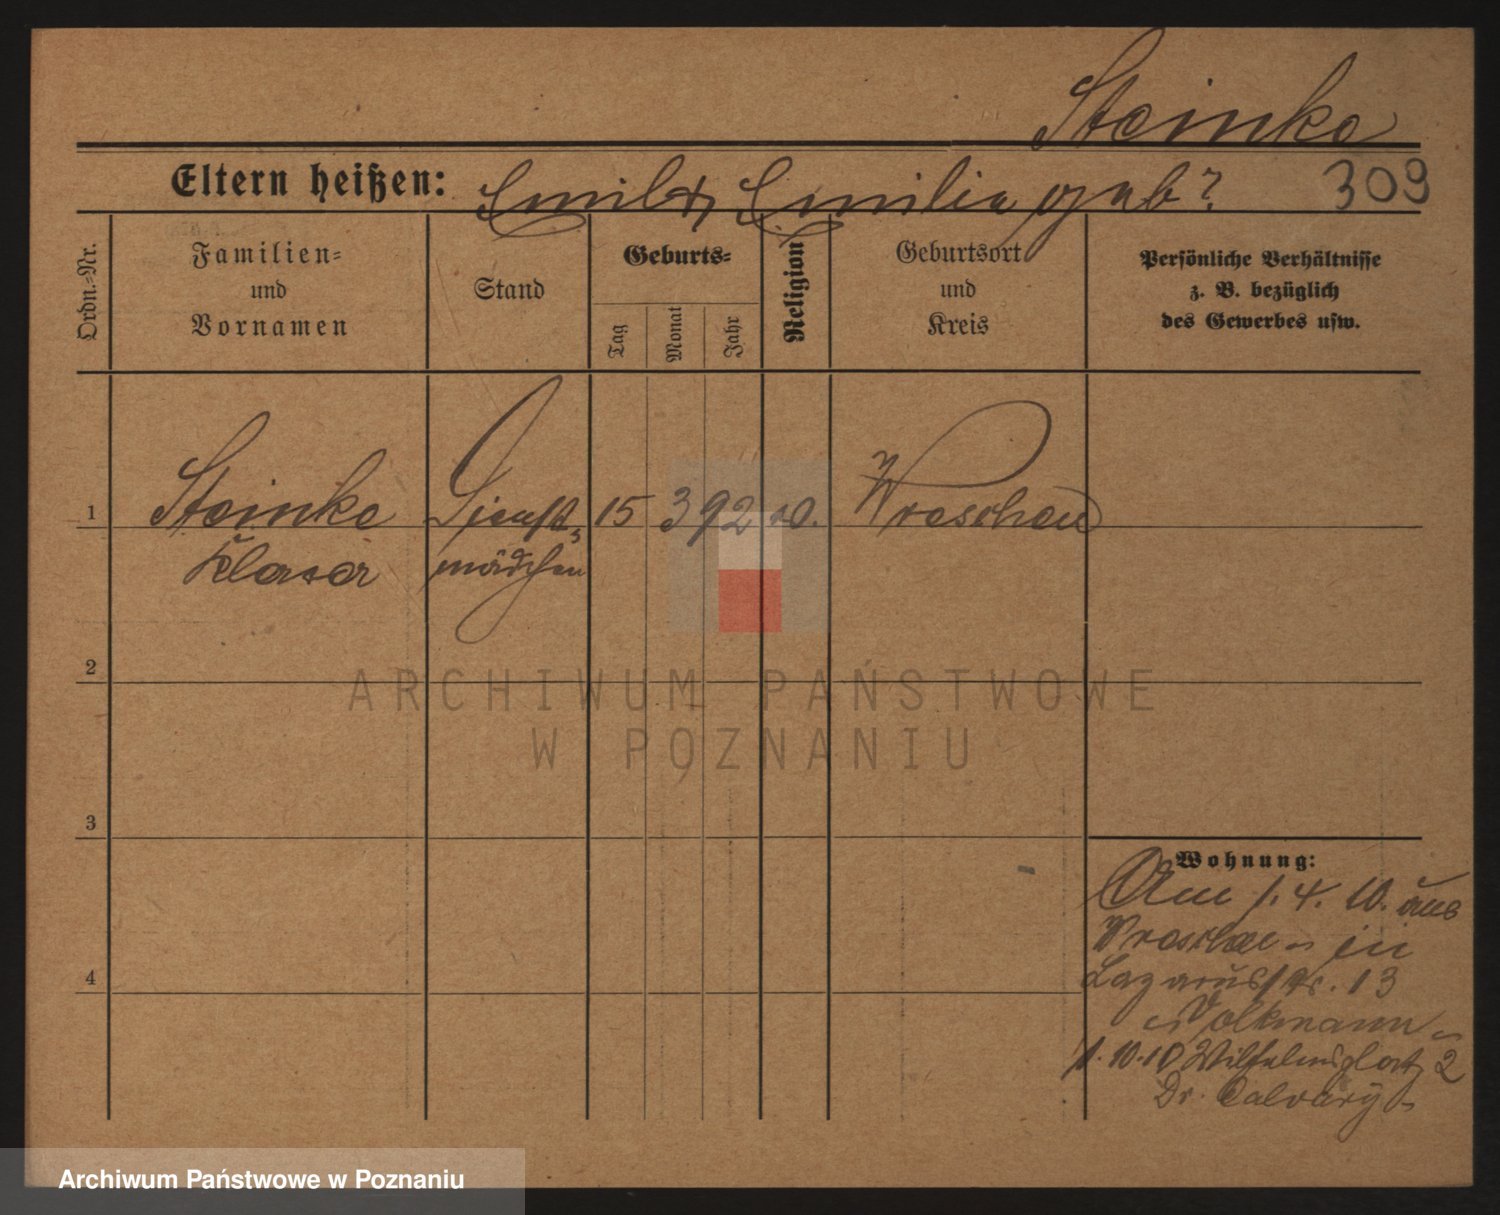 Steinke
Eltern heißen: Emil & Emilie geb?
309
Ordn.-Nr.
Familien-
und
Vornamen
Stand
Geburts-
Tag
Monat
Jahr
Religion
Geburtsort
und
Kreis
Persönliche Verhältnisse
z. B. bezüglich
des Gewerbes usw.
1 Steinke Dienst- 15 3 92 Wreschen
mädchen
2
3
4
Wohnung:
Am 1. 4. 10. aus
Wreschen in
Lazarusstr. 13
Volkmann
1.10.10 Wilhelmsplatz 2
Dr. Calvary
ARCHIWUM PAŃSTWOWE
W POZNANIU
Archiwum Państwowe w Poznaniu